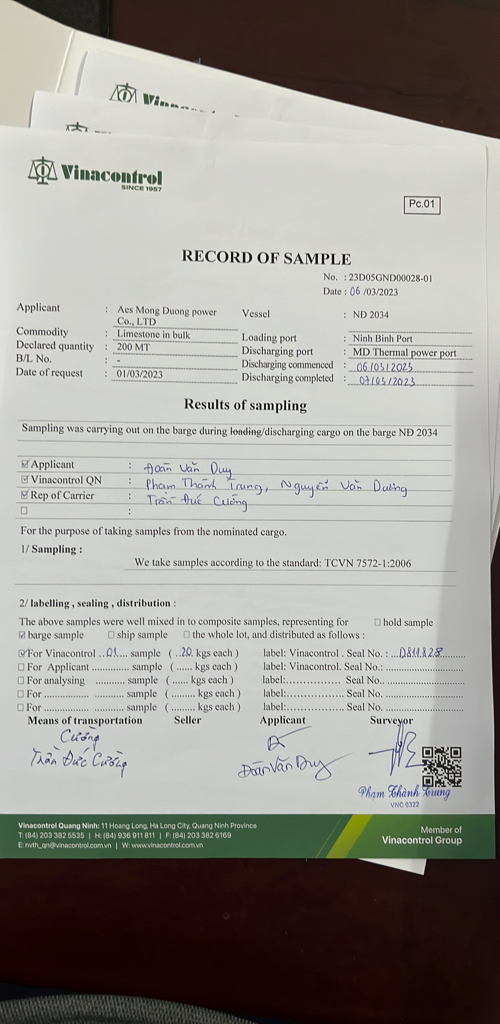 Vinacontrol
Vinacontrol
SINCE 1957
Pc.01
RECORD OF SAMPLE
No. : 23D05GND00028-01
Date : 06 /03/2023
Applicant : Aes Mong Duong power Co., LTD
Vessel : NĐ 2034
Commodity : Limestone in bulk
Loading port : Ninh Binh Port
Declared quantity : 200 MT
Discharging port : MD Thermal power port
B/L No. : -
Discharging commenced : 06/03/2023
Date of request : 01/03/2023
Discharging completed : 07/03/2023
Results of sampling
Sampling was carrying out on the barge during loading/discharging cargo on the barge NĐ 2034
☑ Applicant : Đoàn Văn Duy
☑ Vinacontrol QN : Phạm Thành Trung, Nguyễn Văn Dương
☑ Rep of Carrier : Trần Đức Cường
☐ :
For the purpose of taking samples from the nominated cargo.
1/ Sampling :
We take samples according to the standard: TCVN 7572-1:2006
2/ labelling , sealing , distribution :
The above samples were well mixed in to composite samples, representing for ☐ hold sample
☑ barge sample ☐ ship sample ☐ the whole lot, and distributed as follows :
☑For Vinacontrol ..01.... sample (..20. kgs each ) label: Vinacontrol . Seal No. : ...D811828
☐ For Applicant ............ sample (...... kgs each ) label: Vinacontrol. Seal No.: ......................
☐ For analysing ............ sample (...... kgs each ) label:............... Seal No.. ......................
☐ For ............................ sample (......... kgs each ) label:................ Seal No. ......................
☐ For ............................ sample (......... kgs each ) label:................ Seal No. ......................
Means of transportation Seller Applicant Surveyor
Cường
Trần Đức Cường
Đoàn Văn Duy
Phạm Thành Trung
VNC 0322
Vinacontrol Quang Ninh: 11 Hoang Long, Ha Long City, Quang Ninh Province
T: (84) 203 382 5535 | H: (84) 936 911 811 | F: (84) 203 382 6169
E: nvth_qn@vinacontrol.com.vn | W: www.vinacontrol.com.vn
Member of
Vinacontrol Group